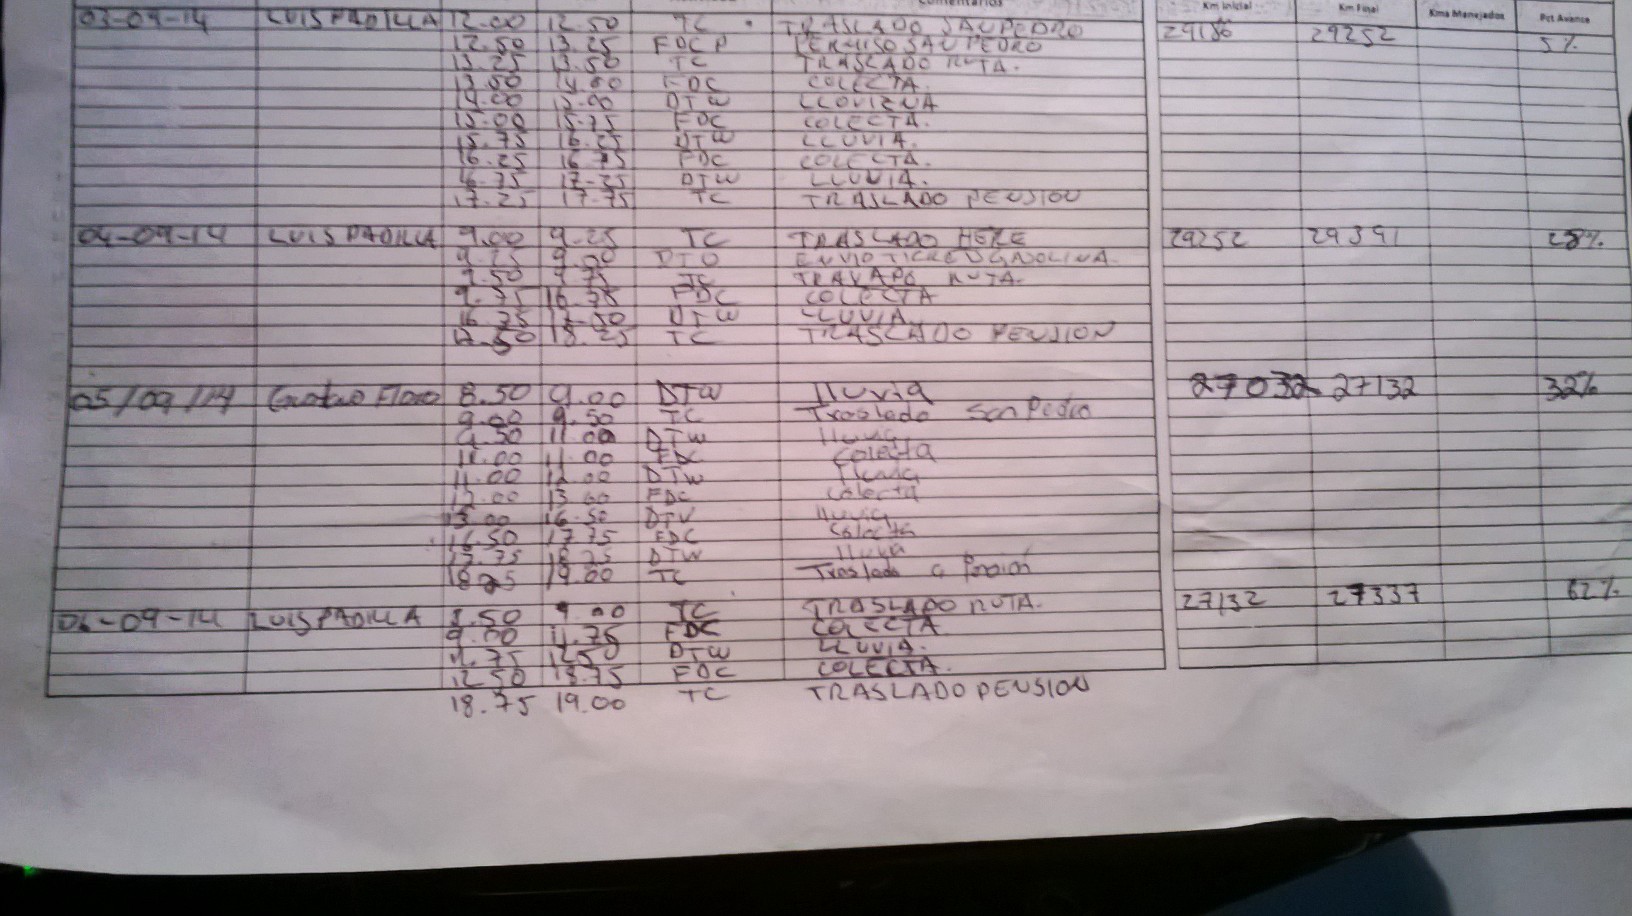 Comentarios Km Inicial Km Final Kms Manejados Pct Avance
03-09-14 LUIS PADILLA 12.00 12.50 TC TRASLADO SAN PEDRO 29186 29252 5%
12.50 13.25 FDCP PERMISO SAN PEDRO
13.25 13.50 TC TRASLADO RUTA.
13.50 14.00 FDC COLECTA.
14.00 15.00 DTW LLOVIZNA
15.00 15.75 FDC COLECTA.
15.75 16.25 DTW LLUVIA.
16.25 16.75 FDC COLECTA.
16.75 17-25 DTW LLUVIA.
17.25 17.75 TC TRASLADO PENSION
04-09-14 LUIS PADILLA 9.00 9.25 TC TRASLADO HERE 29252 29391 28%
9.25 9.50 DTO ENVIO
9.50 9.75 TC RUTA.
9.75 16.75 FDC COLECTA
16.75 17.50 DTW LLUVIA.
17.50 18.25 TC TRASLADO PENSION
05/09/14 8.50 9.00 DTW lluvia 27032 27132 32%
9.00 9.50 TC Traslado San Pedro
9.50 11.00 DTW lluvia
11.00 11.00 FDC Colecta
11.00 12.00 DTW
12.00 13.00 FDC Colecta
13.00 16.50 DTW lluvia
16.50 17.75 FDC Colecta
17.75 18.25 DTW lluvia
18.25 19.00 TC Traslado a Pension
06-09-14 LUIS PADILLA 8.50 9.00 TC TRASLADO RUTA. 27132 27337 62%
9.00 11.75 FDC COLECTA
11.75 12.50 DTW LLUVIA.
12.50 18.75 FDC COLECTA.
18.75 19.00 TC TRASLADO PENSION